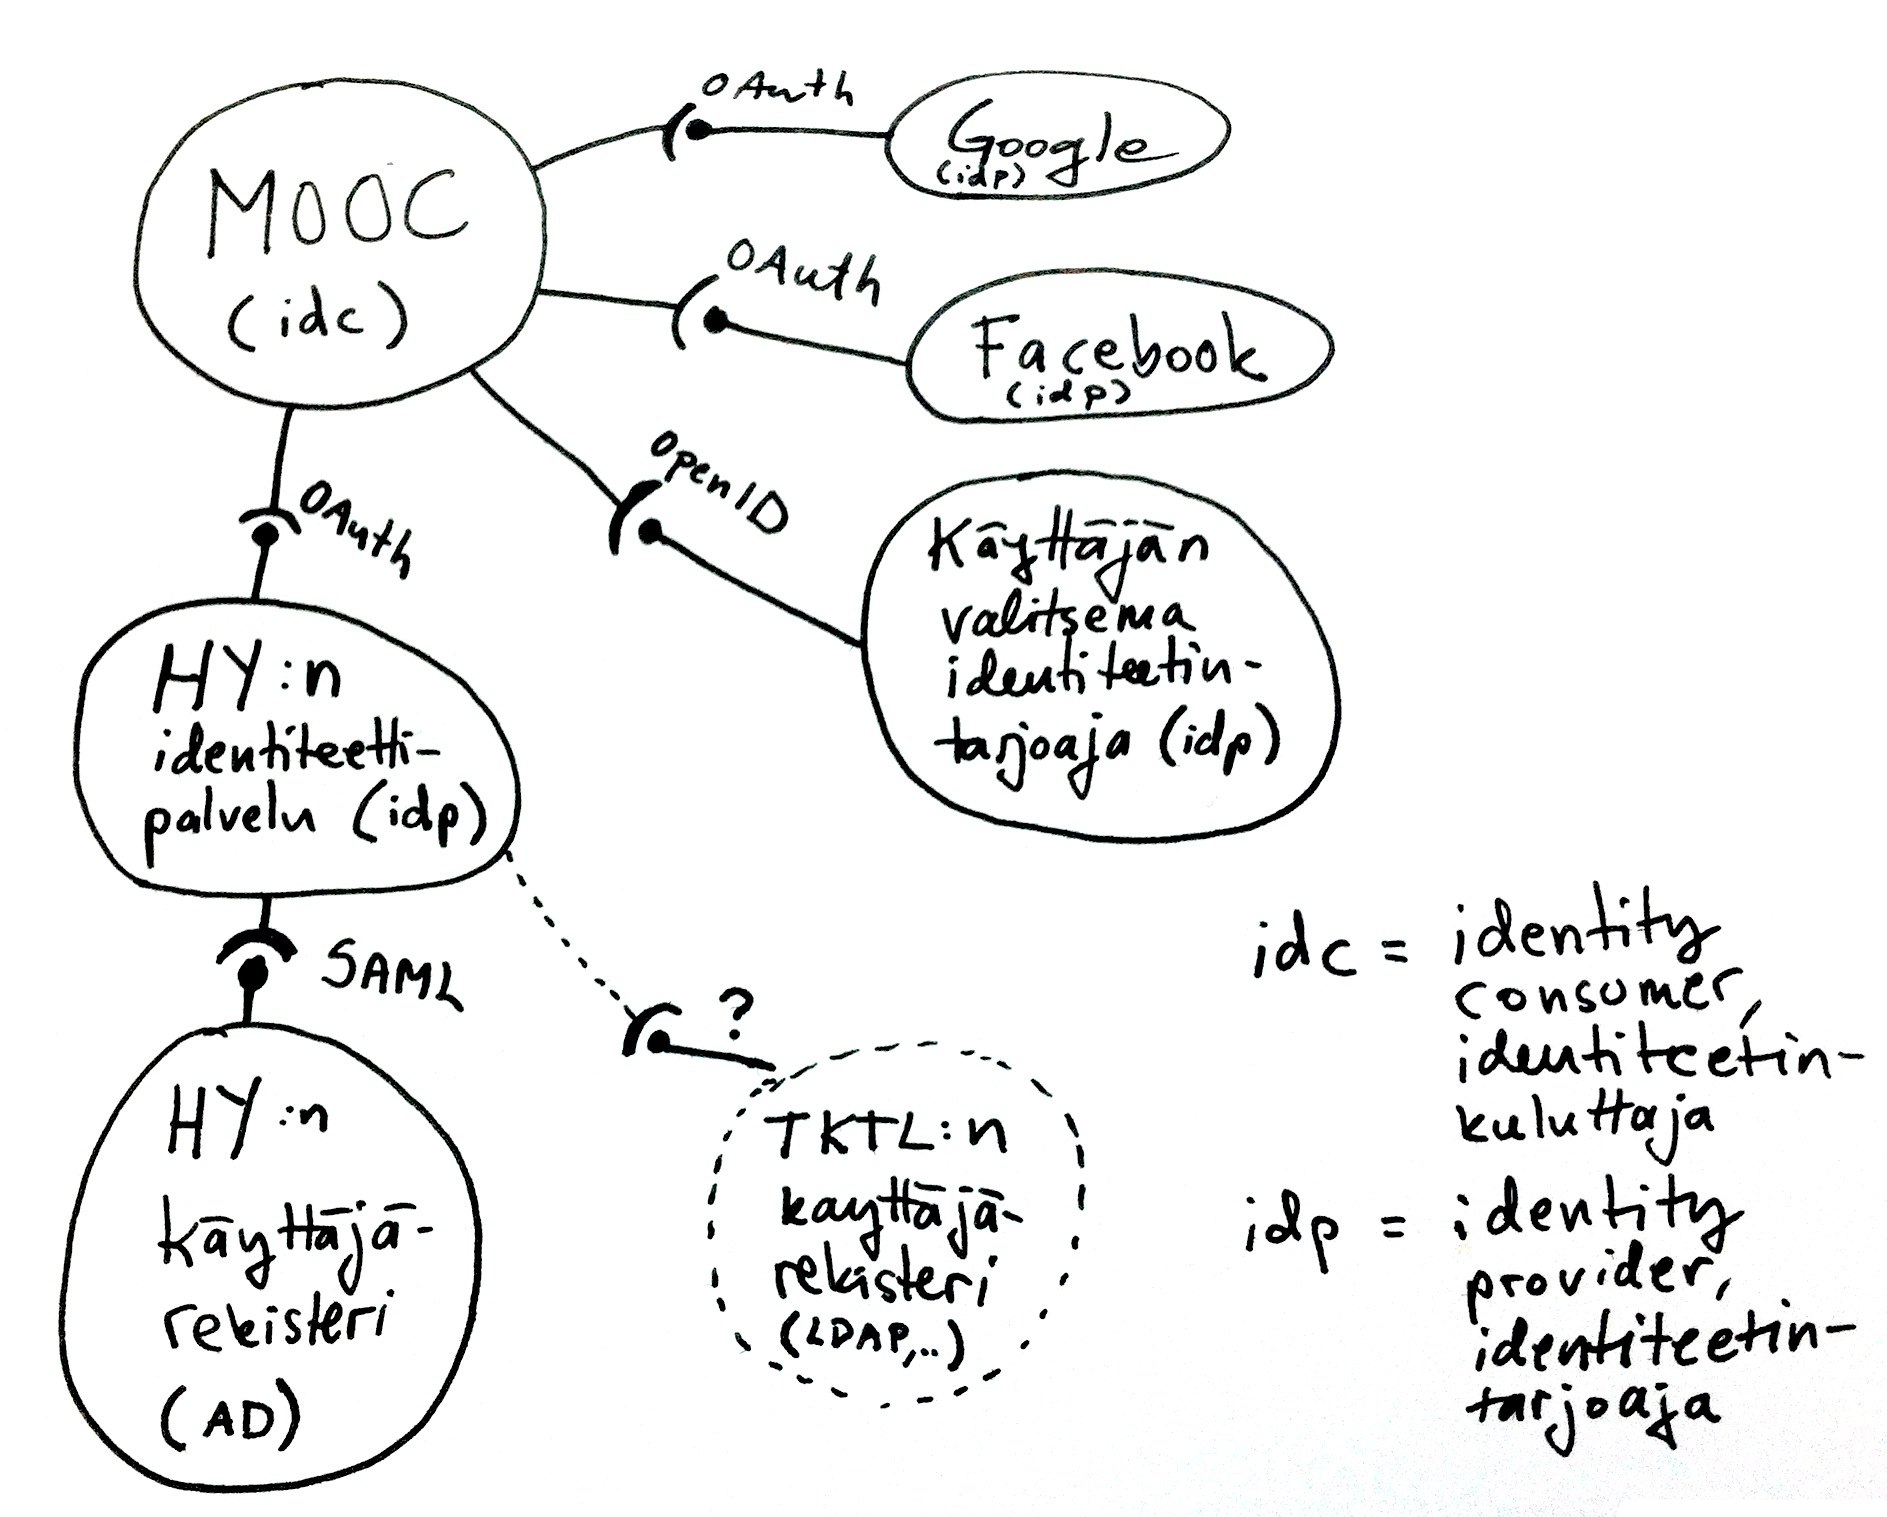 OAuth
Google
(idp)
MOOC
(idc)
OAuth
Facebook
(idp)
OpenID
OAuth
Käyttäjän
valitsema
identiteetin-
tarjoaja (idp)
HY:n
identiteetti-
palvelu (idp)
SAML
?
HY:n
käyttäjä-
rekisteri
(AD)
TKTL:n
kayttäjä-
rekisteri
(LDAP,..)
idc = identity
consumer,
identiteetin-
kuluttaja
idp = identity
provider,
identiteetin-
tarjoaja